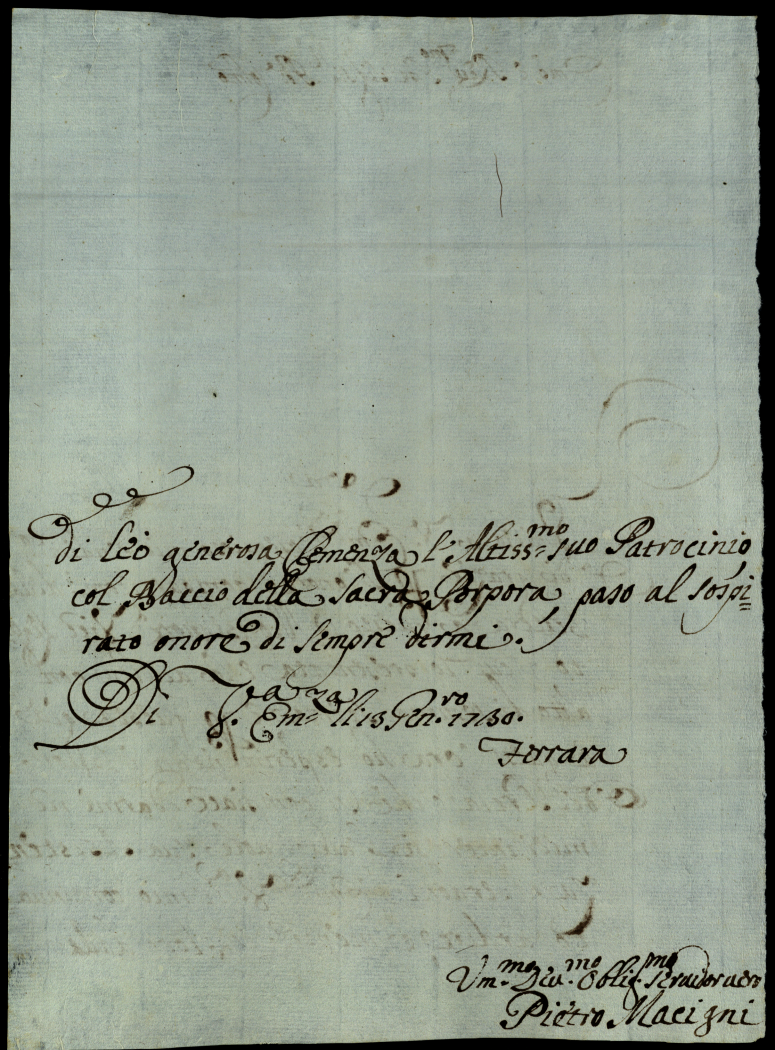 Di lei generosa Clemenza l'Altiss.mo suo Patrocinio,
col Baccio della Sacra Porpora, paso al sospi=
rato onore di sempre dirmi.
Di V.a Em.za li 13 Gen.ro 1730.
Ferrara
Um.mo Dev.mo Oblig.mo Servidor vero
Pietro Macigni